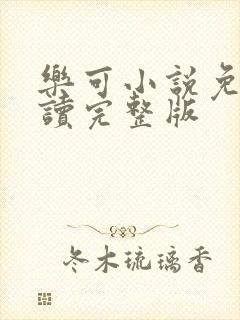 樂可小說免
讀完整版
冬木琉璃香